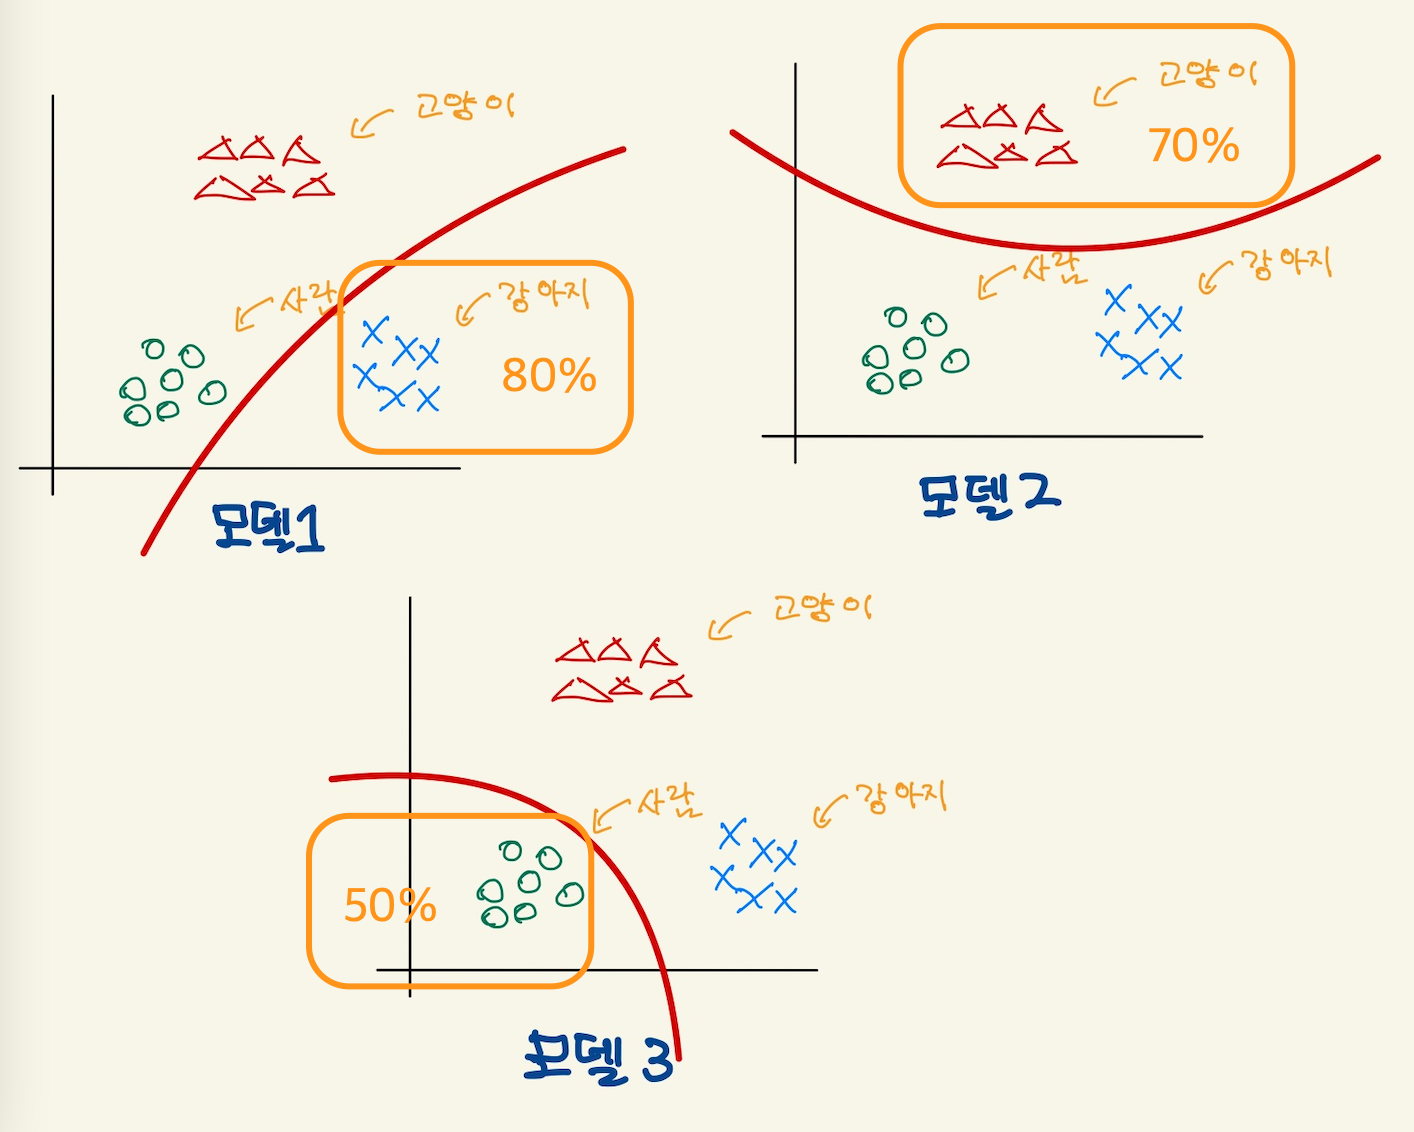 고양이
사람
강아지
80%
모델1
고양이
70%
사람
강아지
모델 2
고양이
사람
강아지
50%
모델 3